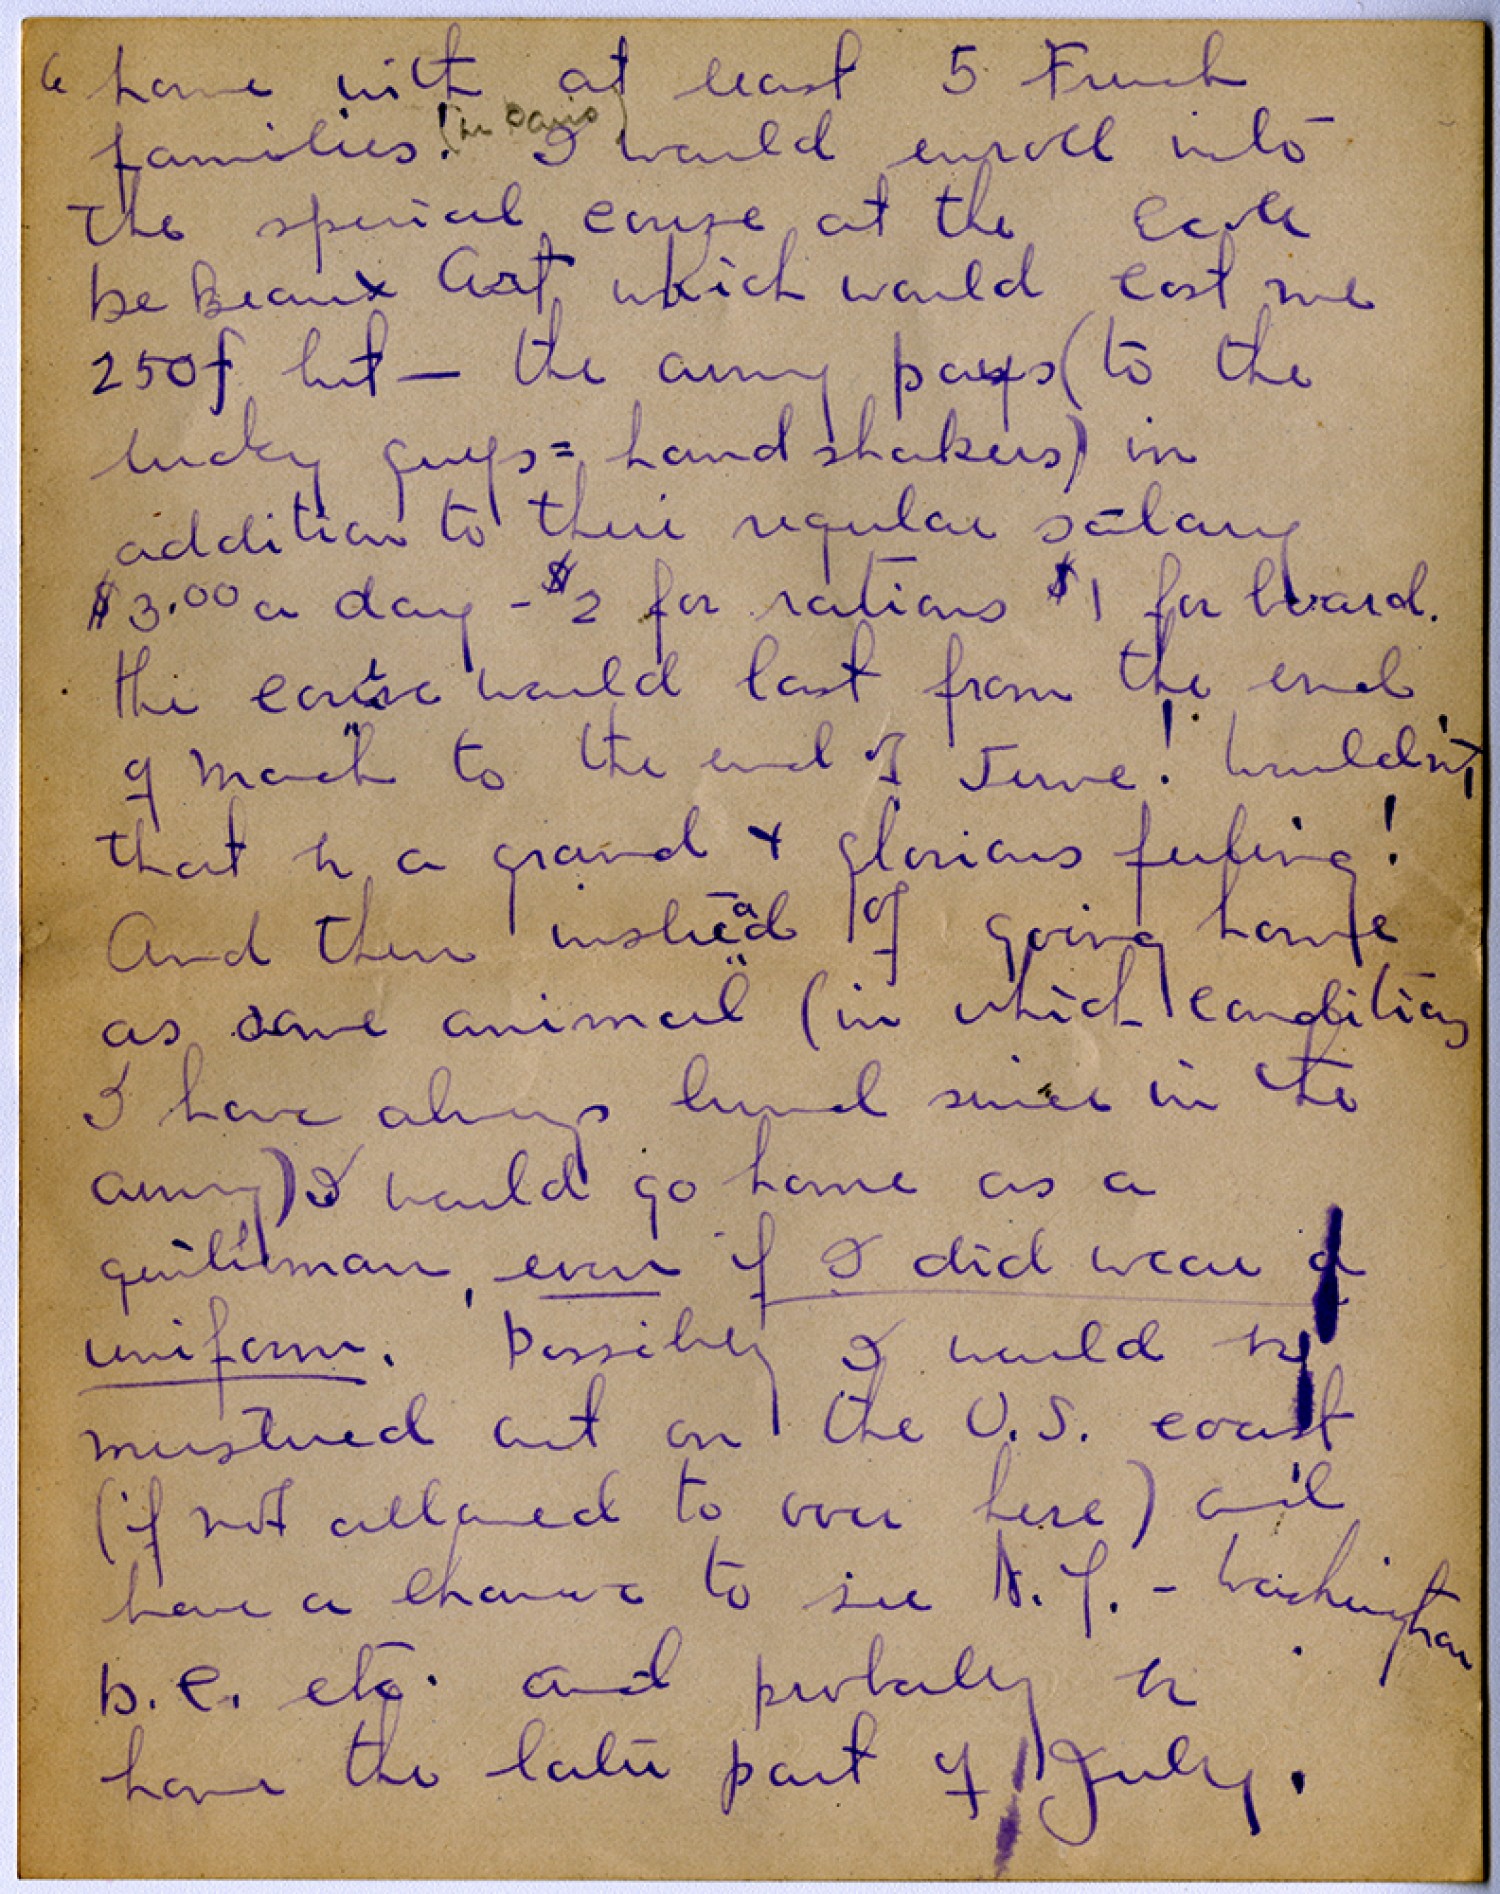 home with at least 5 French
families! (in Paris) I would enroll into
the special course at the Ecole
De Beaux Art which would cost me
250f but — the army pays (to the
lucky guys = handshakers) in
addition to their regular salary
$3.00 a day - $2 for rations $1 for board.
The course would last from the end
of March to the end of June! Wouldn't
that be a grand + glorious feeling!
And then instead of going home
as some animal (in which condition
I have always lived since in the
army) I would go home as a
gentleman, even if I did wear a
uniform. Possibly I would be
mustered out on the U.S. coast
(if not allowed to over here) and
have a chance to see N.Y. - Washington
D.C. etc. and probably be
home the later part of July.